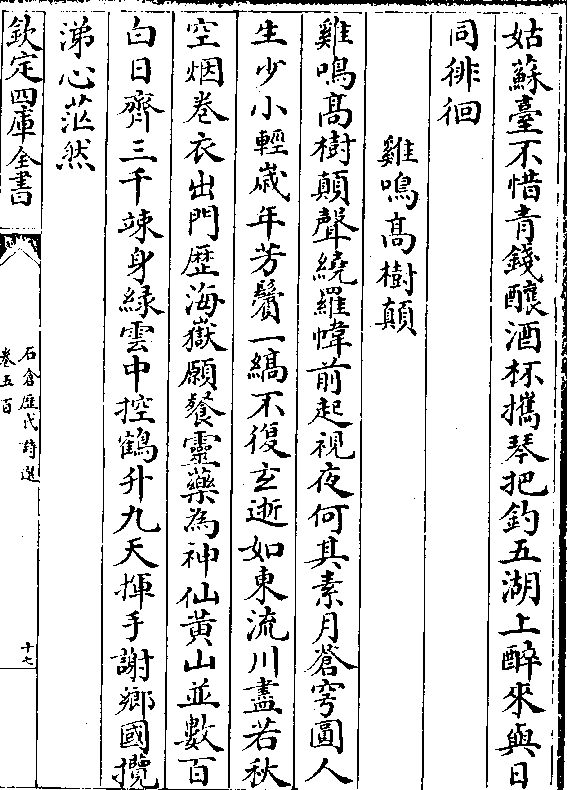 姑蘇臺不惜青錢釀酒杯攜琴把釣五湖上醉來與日
同徘徊
雞鳴高樹顛
雞鳴高樹顛聲繞羅幃前起視夜何其素月蒼穹圓人
生少小輕歲年芳鬢一縞不復玄逝如東流川盡若秋
空烟卷衣出門歷海嶽願餐靈藥為神仙黃山並數百
白日齊三千竦身綠雲中控鶴升九天揮手謝鄉國攬
涕心茫然
欽定四庫全書
石倉歷代詩選
卷五百
十七